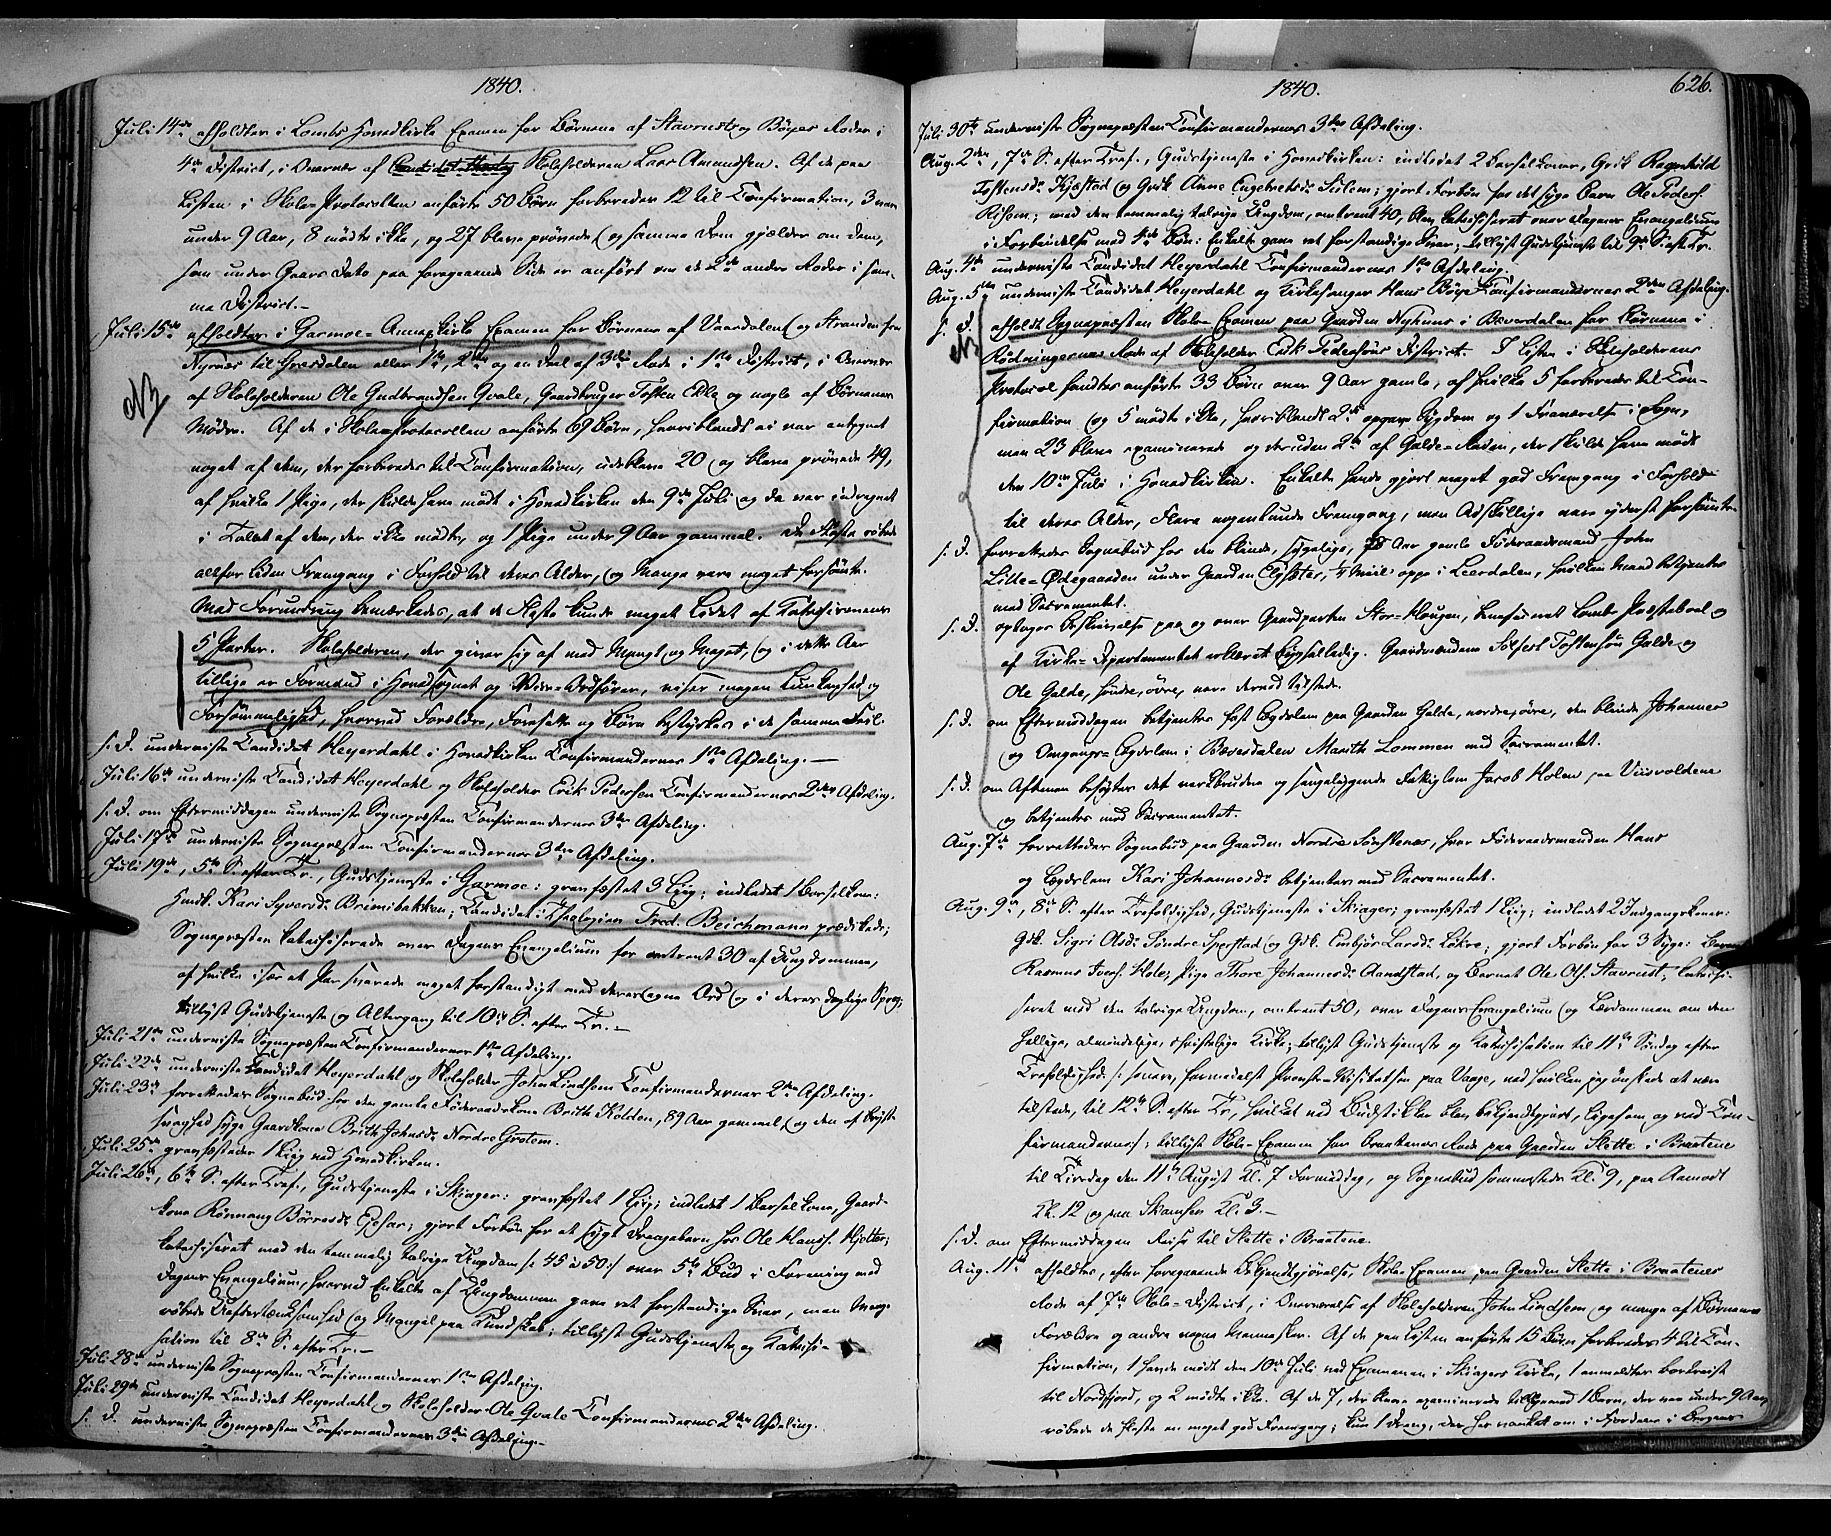 1840.
Juli 14de afholdtes i Lombs Hovedkirke Examen for Børnene af Stavrusts og Bøyes Roder i
4de District, i Overvær af Skoleholderen Lars Amundsen. Af de paa
Listen i Skole-Protocollen anførte 50 Børn forberedes 12 til Confirmation, 3 vare
under 9 Aar, 8 mødte ikke, og 27 bleve prøvede (og samme Dom gjælder om dem,
som under Gaars Dato paa foregaaende Side er anført om de 2de andre Roder i sam-
me District.-
Juli 15de afholdtes i Garmoe-Annexkirke Examen for Børnene af Vaardalen (og Stranden fra
Nyrnæs til Græsdalen eller 1ste, 2den og en Deel af 3die Rode i 1ste District, i Overvær
af Skoleholderen Ole Gudbrandsen Qvale, Gaardbruger Tosten Eklle og nogle af Børnenes
Mødre. Af de i Skole-Protocollen anførte 69 Børn, hvoriblandt ei var antegnet
noget af dem, der forberedes til Confirmation, udebleve 20 (og bleve prøvede 49,
af hvilke 1 Pige, der skulde have mødt i Hovedkirken den 9de Juli og da var indregnet
i Tallet af dem, der ikke mødte, og 1 Pige under 9 Aar gammel. De fleste røbede
altfor liden Fremgang i Forhold til deres Alder, (og Mange vare meget forsømte.
Med Forundring bemærkedes, at de fleste kunde meget Lidet af Catechismens
5 Parter. Skoleholderen, der giver sig af med Mangt og Meget, (og i dette Aar
tillige er Formand i Hovedsognet og Vice-Ordfører, viser megen Lunkenhed og
Forsømmelighed, hvorved Forældre, Foresatte og Børn bestyrkes i de samme Feil.
s. D. underviste Candidat Heyerdahl i Hovedkirken Confirmandernes 1ste Afdeling.-
Juli 16de underviste Candidat Heyerdahl og Skoleholder Erik Pedersen Confirmandernes 2den Afdeling.
s. D. om Eftermiddagen underviste Sognepræsten Confirmandernes 3die Afdeling.
Juli 17de underviste Sognepræsten Confirmandernes 3die Afdeling.
Juli 19de, 5te S. efter Tr., Gudstjeneste i Garmoe: gravfæstet 3 Liig; indledet 1 Barselkone:
Huusk. Kari Syversd. Brimibakken; Candidat i Theologien Fred. Beichmann prædikede;
Sognepræsten katechiserede over Dagens Evangelium for omtrent 30 af Ungdommen,
af hvilke især et Par svarede meget forstandigt med deres egne Ord (og i deres daglige Sprog;
tillyst Gudstjeneste (og Altergang til 10de S. efter Tr.-
Juli 21de underviste Sognepræsten Confirmandernes 1ste Afdeling.
Juli 22de underviste Candidat Heyerdahl og Skoleholder John Lindsøe Confirmandernes 2den Afdeling.
Juli 23de forrettedes Sognebud hos den gamle Føderaadskone Brith Kolden, 89 Aar gammel (og den af Bryst-
svaghed syge Gaardkone Brith Johnsd. Nordre Grotem.
Juli 25de gravfæstedes 1 Liig ved Hovedkirken.
Juli 26de, 6te S. efter Tref., Gudstjeneste i Skiager: gravfæstet 1 Liig; indledet 1 Barselkone, Gaard-
kone Rønnaug Børresd.; gjort Forbøn for et sygt Drengebarn hos Ole Hanss. Hjelter;
katechiseret med den temmelig talrige Ungdom /: 45 à 50:/ over 5te Bud i Forening med
Dagens Evangelium, hvorved Enkelte af Ungdommen gave ret forstandige Svar, men Mange
røbede Ueftertænksomhed (og Mangel paa Kundskab; tillyst Gudstjeneste og Katechi-
sation til 8de S. efter Tr.-
Juli 28de underviste Sognepræsten Confirmandernes 1ste Afdeling.
Juli 29de underviste Candidat Heyerdahl og Skoleholder Ole Qvale Confirmandernes 2den Afdeling.
s. D. underviste Sognepræsten Confirmandernes 3die Afdeling.-
1840.
626.
Juli 30te underviste Sognepræsten Confirmandernes 3die Afdeling.
Aug. 2den, 7de S. efter Tref., Gudstjeneste i Hovedkirken: indledet 2 Barselkoner, Grdk. Ragnhild
Tostensd. Kjæstad (og Grdk. Anne Engebretsd. Sulem; gjort Forbøn for det syge Barn Ole Peders.
Risem; med den temmelig talrige Ungdom, omtrent 40, blev katechiseret over Dagens Evangelium
i Forbindelse med 4de Bøn: Enkelte gave ret forstandige Svar; tillyst Gudstjeneste til 9de S. eft. Tr.
Aug. 4de underviste Candidat Heyerdahl Confirmandernes 1ste Afdeling.
Aug. 5te underviste Candidat Heyerdahl og Kirkesanger Hans Bøye Confirmandernes 2den Afdeling.
s. D. afholdt Sognepræsten Skole-Examen paa Gaarden i Bæverdalen for Børnene i
Rødningernes Rode af Skoleholder Erik Pedersøns District. I Listen i Skoleholderens
Protocol fandtes anførte 33 Børn over 9 Aar gamle, af hvilke 5 forberedes til Con-
firmation (og 5 mødte ikke, hvoriblandt 2de opgave Sygdom og 1 Fraværelse i Sogn,
men 23 bleve examinerede og desuden 2de af Galde-Roden, der skulde have mødt
den 10de Juli i Hovedkirken. Enkelte havde gjort meget god Fremgang i Forhold
til deres Alder, Flere nogenlunde Fremgang, men Adskillige vare yderst forsømte.
s. D. forrettedes Sognebud hos den blinde, sygelige, Aar gamle Føderaadsmand John
Lille-Ødegaarden under Gaarden Elvesæter, 1/4 Miil oppe i Leerdalen, hvilken Mand betjentes
med Sacramentet.
s. D. optoges Beskrivelse paa og over Gaardparten Stor-Hougen, beneficeret Lombs Præstebol og
af Kirke-Departementet erklæret bygselledig. Gaardmændene Tostensøn Galde og
Ole Galde, søndre, øvre, vare derved tilstede.
s. D. om Eftermiddagen betjentes fast Lægdslem paa Gaarden Galde, nordre, øvre, den blinde Johannes
og Omgangs-Lægdslem i Bæverdalen Marith Lommen med Sacramentet.
s. D. om Aftenen besøgtes det værkbrudne og sengeliggende Fattiglem Jacob Holen paa Viisvoldene
og betjentes med Sacramentet.
Aug. 7de forrettedes Sognebud paa Gaarden Nordre Sørstenæs, hvor Føderaadsmanden Hans
og Lægdslem Kari Johannesd. betjentes med Sacramentet.
Aug. 9de, 8de S. efter Trefoldighed, Gudstjeneste i Skiager; gravfæstet 1 Liig; indledet 2 Indgangskoner:
Gdk. Sigri Olsd. Søndre Sperstad (og Gdk. Embjør Larsd. Løkre; gjort Forbøn for 3 Syge: Barnet
Rasmus Ivers. Hole, Pige Thore Johannesd. Aandstad, og Barnet Ole Ols. Stavrust; katechi-
seret med den talrige Ungdom, omtrent 50, over Dagens Evangelium (og Lærdommen om den
hellige, almindelige, christelige Kirke; tillyst Gudstjeneste og Katechisation til 11te Søndag efter
Trefoldighed /: senere, formedelst Provste-Visitatsen paa Vaage, ved hvilken jeg ønskede at være
tilstede, til 12te S. efter Tr., hvilket ved Budstikker blev bekjendtgjort, ligesom og ved Con-
firmanderne:/; tillyst Skole-Examen for Braatenes Rode paa Gaarden Slette i Braatene
til Tirsdag den 11te August Kl. 7 Formiddag, og Sognebud sammesteds Kl. 9, paa Aamodt
Kl. 12 og paa Skamsar Kl. 3.-
s. D. om Eftermiddagen Reise til Slette i Braatene.
Aug. 11te afholdtes, efter foregaaende Bekjendtgjørelse, Skole-Examen paa Gaarden Slette i Braatenes
Rode af 7de Skole-District, i Overværelse af Skoleholderen John Lindsøe (og mange af Børnenes
Forældre og andre voxne Mennesker. Af de paa Listen anførte 15 Børn forberedes 4 til Con-
firmation, 1 havde mødt den 10de Juli ved Examen i Skiagers Kirke, 1 anmeldtes bortreist
til Nordfjord, og 2 mødte ikke. Af de 7, der bleve examinerede tilligemed 1 Barn, der var under 9 Aar,
røbede de fleste en meget god Fremgang; kun 1 Dreng, der har vanket om i Fjordene i Bergens